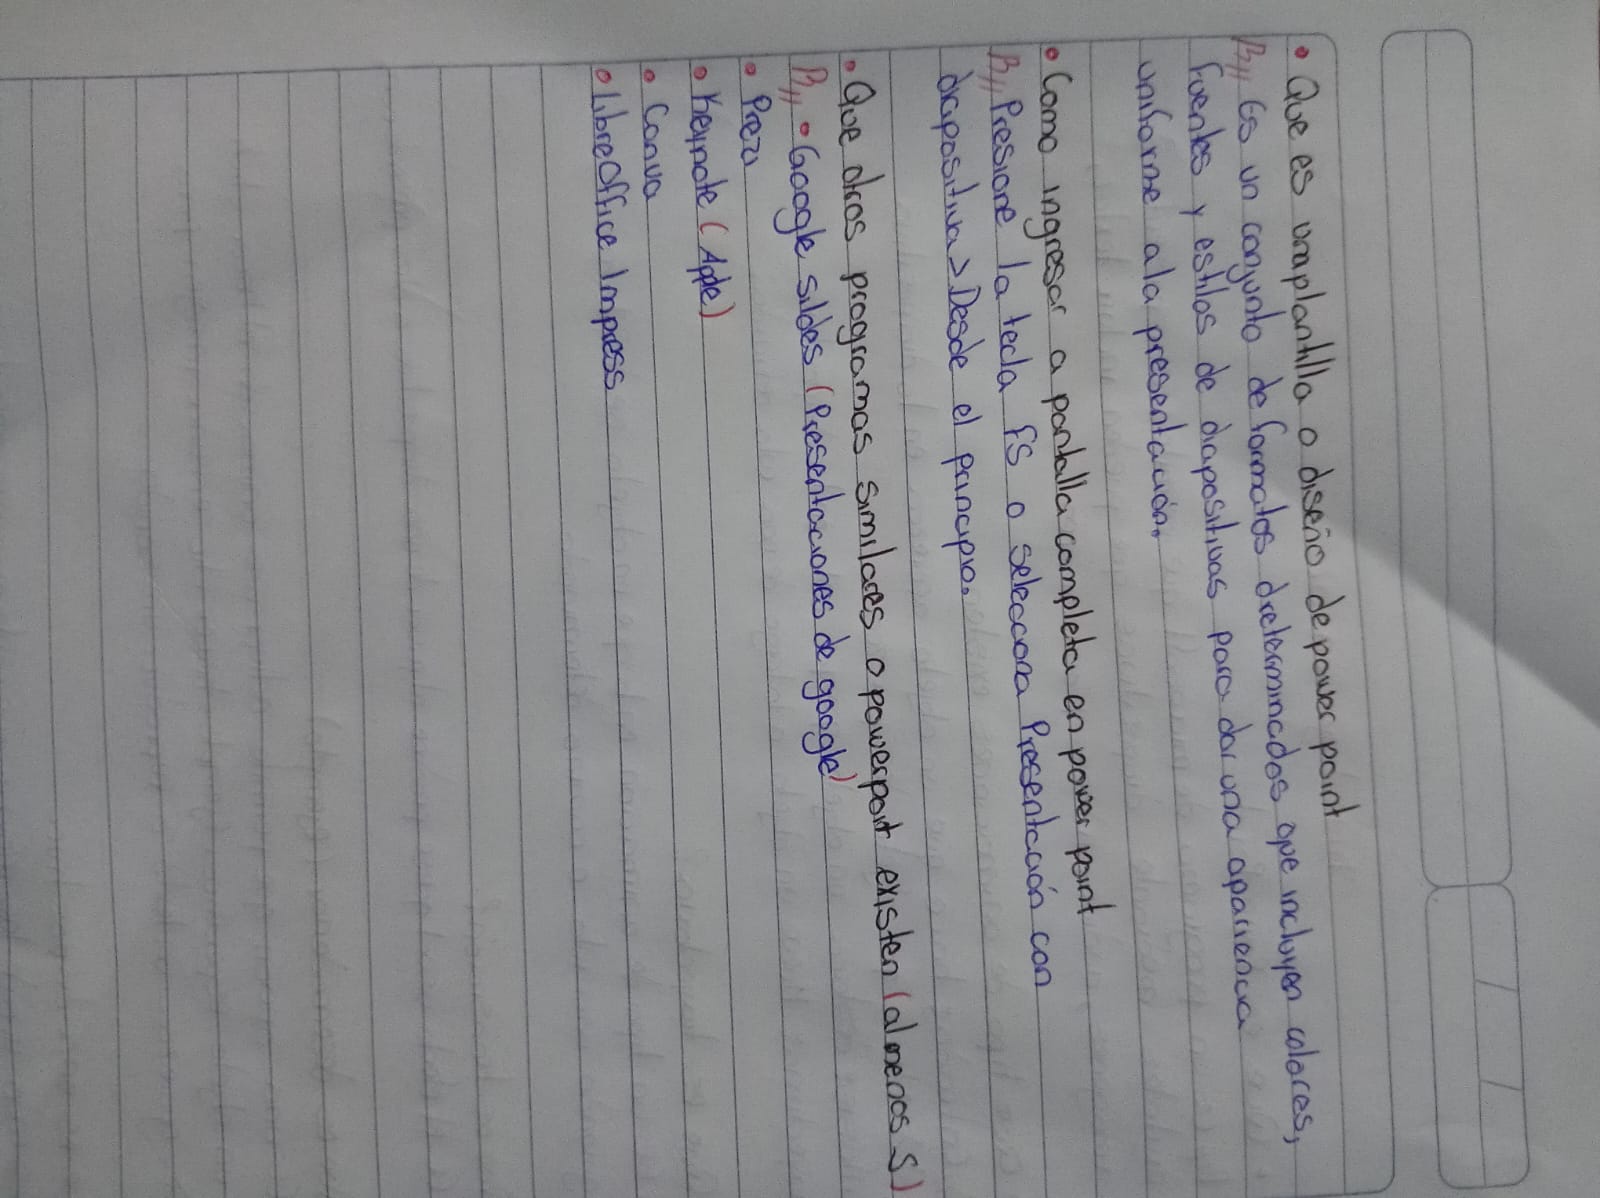 • Que es unaplantilla o diseño de power point
R// Es un conjunto de formatos dretermincdos que incluyen colores,
fuentes y estilos de diapositivas para dar una apariencia
uniforme ala presentación.
• Como ingresar a pantalla completa en power point
R// Presione la tecla F5 o selecciona Presentación con
diapositiva > Desde el principio.
• Que otros programas similares a powerpoit existen (al menos 5)
R// • Google sildes (Presentaciones de google)
• Prezi
• Keynote (Apple)
• Canva
• LibreOffice Impress